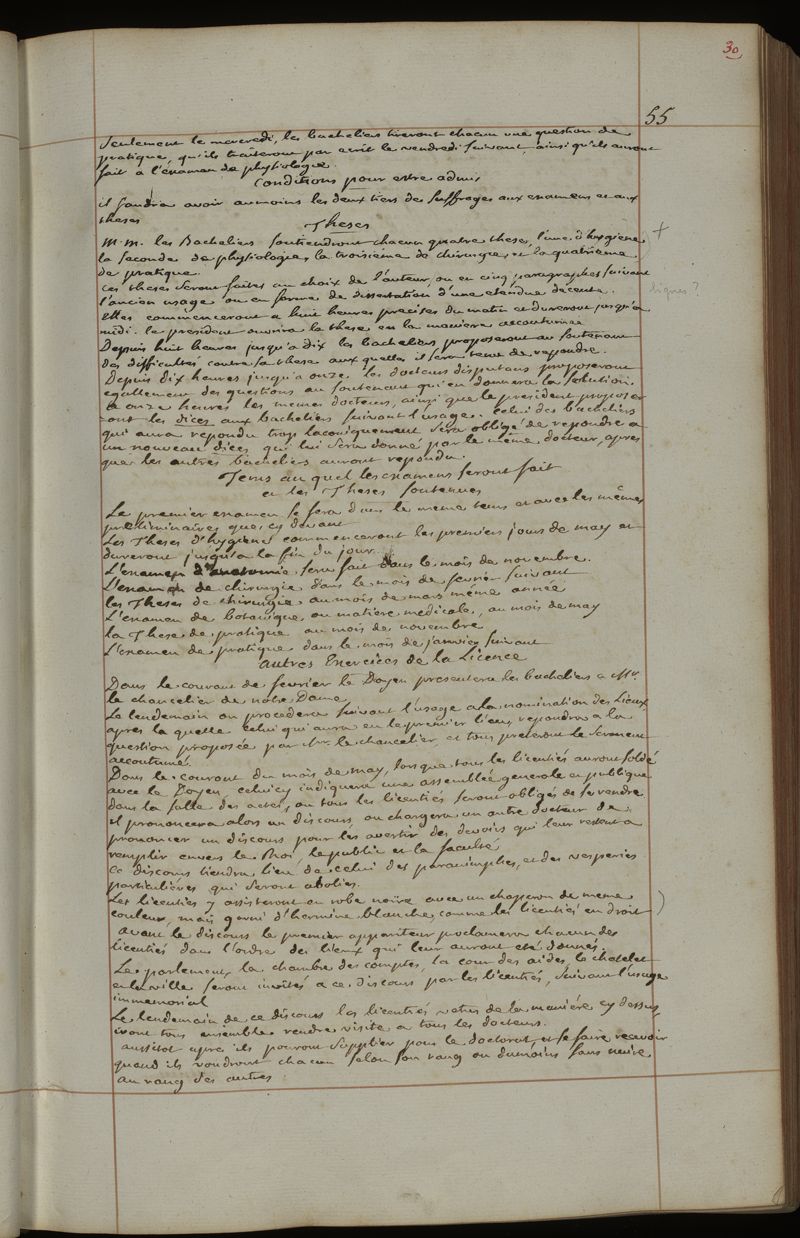 30
55
Seulement le mercredi, les bacheliers tireront chacun une question de
pratique, qu'ils traiteront par ecrit le vendredi suivant, ainsi qu'ils auront
fait a l'examen de physiologie.
Conditions pour estre admis
il faudra avoir aumoins les deux tiers des suffrages aux examens et aux
theses
Theses
M.M. les Bacheliers soutiendront chacun quatre theses, l'une d'hygiene
la seconde de physiologie, la troisieme de chirurgie, et la quatrieme
de pratique.
Ces theses seront faites au choix de l'auteur, ou en cinq paragraphes suivant
lignes ?
l'ancien usage ou en forme de dissertation d'une etendue decente.
Elles commenceront a huit heures precises du matin et dureront jusqu'a
midi. le president ouvrira la these en la maniere accoutumée
Depuis huit heures jusqu'a dix les bacheliers proposeront au soutenant
des difficultés contre sa these aux quelles il sera tenu de repondre.
Depuis dix heures jusqu'a onze, les docteurs disputans proposeront
egallement des questions au soutenant qui en donnera la solution.
a onze heures les memes docteurs, ainsi que le president propose
-ront les dices aux bacheliers suivant l'usage. Celui des bacheliers
qui aura repondu trop laconiquement sera obligé de repondre a
un nouveau dices qui lui sera donné par le même docteur, apres
que les autres bacheliers auront repondu.
Tems au quel les examens seront fait
et les Theses soutenues
Le premier examen se fera dans le meme tems et avec les mêmes
preliminaires que cy devant
Les Theses d'hygiene commenceront les premiers jours de may et
dureront jusqu'a la fin du jour.
L'examen d'anatomie sera fait dans le mois de novembre.
L'examen de chirurgie dans le mois de fevrier suivant
les Theses de chirurgie au mois de mars même année
L'examen de botanique, ou matiere medicale, au mois de may
la These de pratique au mois de novembre
L'examen de pratique dans le mois de janvier suivant
autres Exercices de la Licence
Dans le courant de fevrier le Doyen presentera les bacheliers a Mr.
le chancelier de notre Dame
Le lendemain on procedera suivant l'usage a la nomination des Lieux
apres la quelle celui qui aura eu le premier lieu, repondra a la
question proposée par Mr. le chancelier, et tous preteront le serment
accoutumé.
Dans le courant du mois de may, lorsque tous les licentiés auront soldé
avec le Doyen, celui cy indiquera une assemblée generale et publique
dans la salle des actes, ou tous les licentiés seront obligés de se rendre
il prononcera alors un discours, ou chargera un autre docteur de
prononcer un discours pour les avertir des devoirs qui leur restent a
remplir envers le Roi, le public et la faculté
Ce discours tiendra lieu de celui des paranimphes, et des vesperies
particulières qui seront abolies.
Les licentiés y assisteront en robe noire avec un chaperon de meme
couleur, mais garni d'hermine blanche, comme les licentiés en droit
avant le discours le premier appariteur proclamera chacun des
licentiés dans l'ordre des lieux qui leur auront eté donnés.
Le parlement, la chambre des comptes, la cour des aides, le chatelet
et la ville seront invités a ce discours par les licentiés, suivant l'usage
immemorial
Le lendemain de ce discours les licentiés vetus de la maniére cy dessus,
iront tous ensemble rendre visite a tous les docteurs.
aussitot apres ils pourront supplier pour le doctorat, et se faire recevoir
quand ils voudront chacun selon son rang ou dumoins sans nuire
au rang des autres.